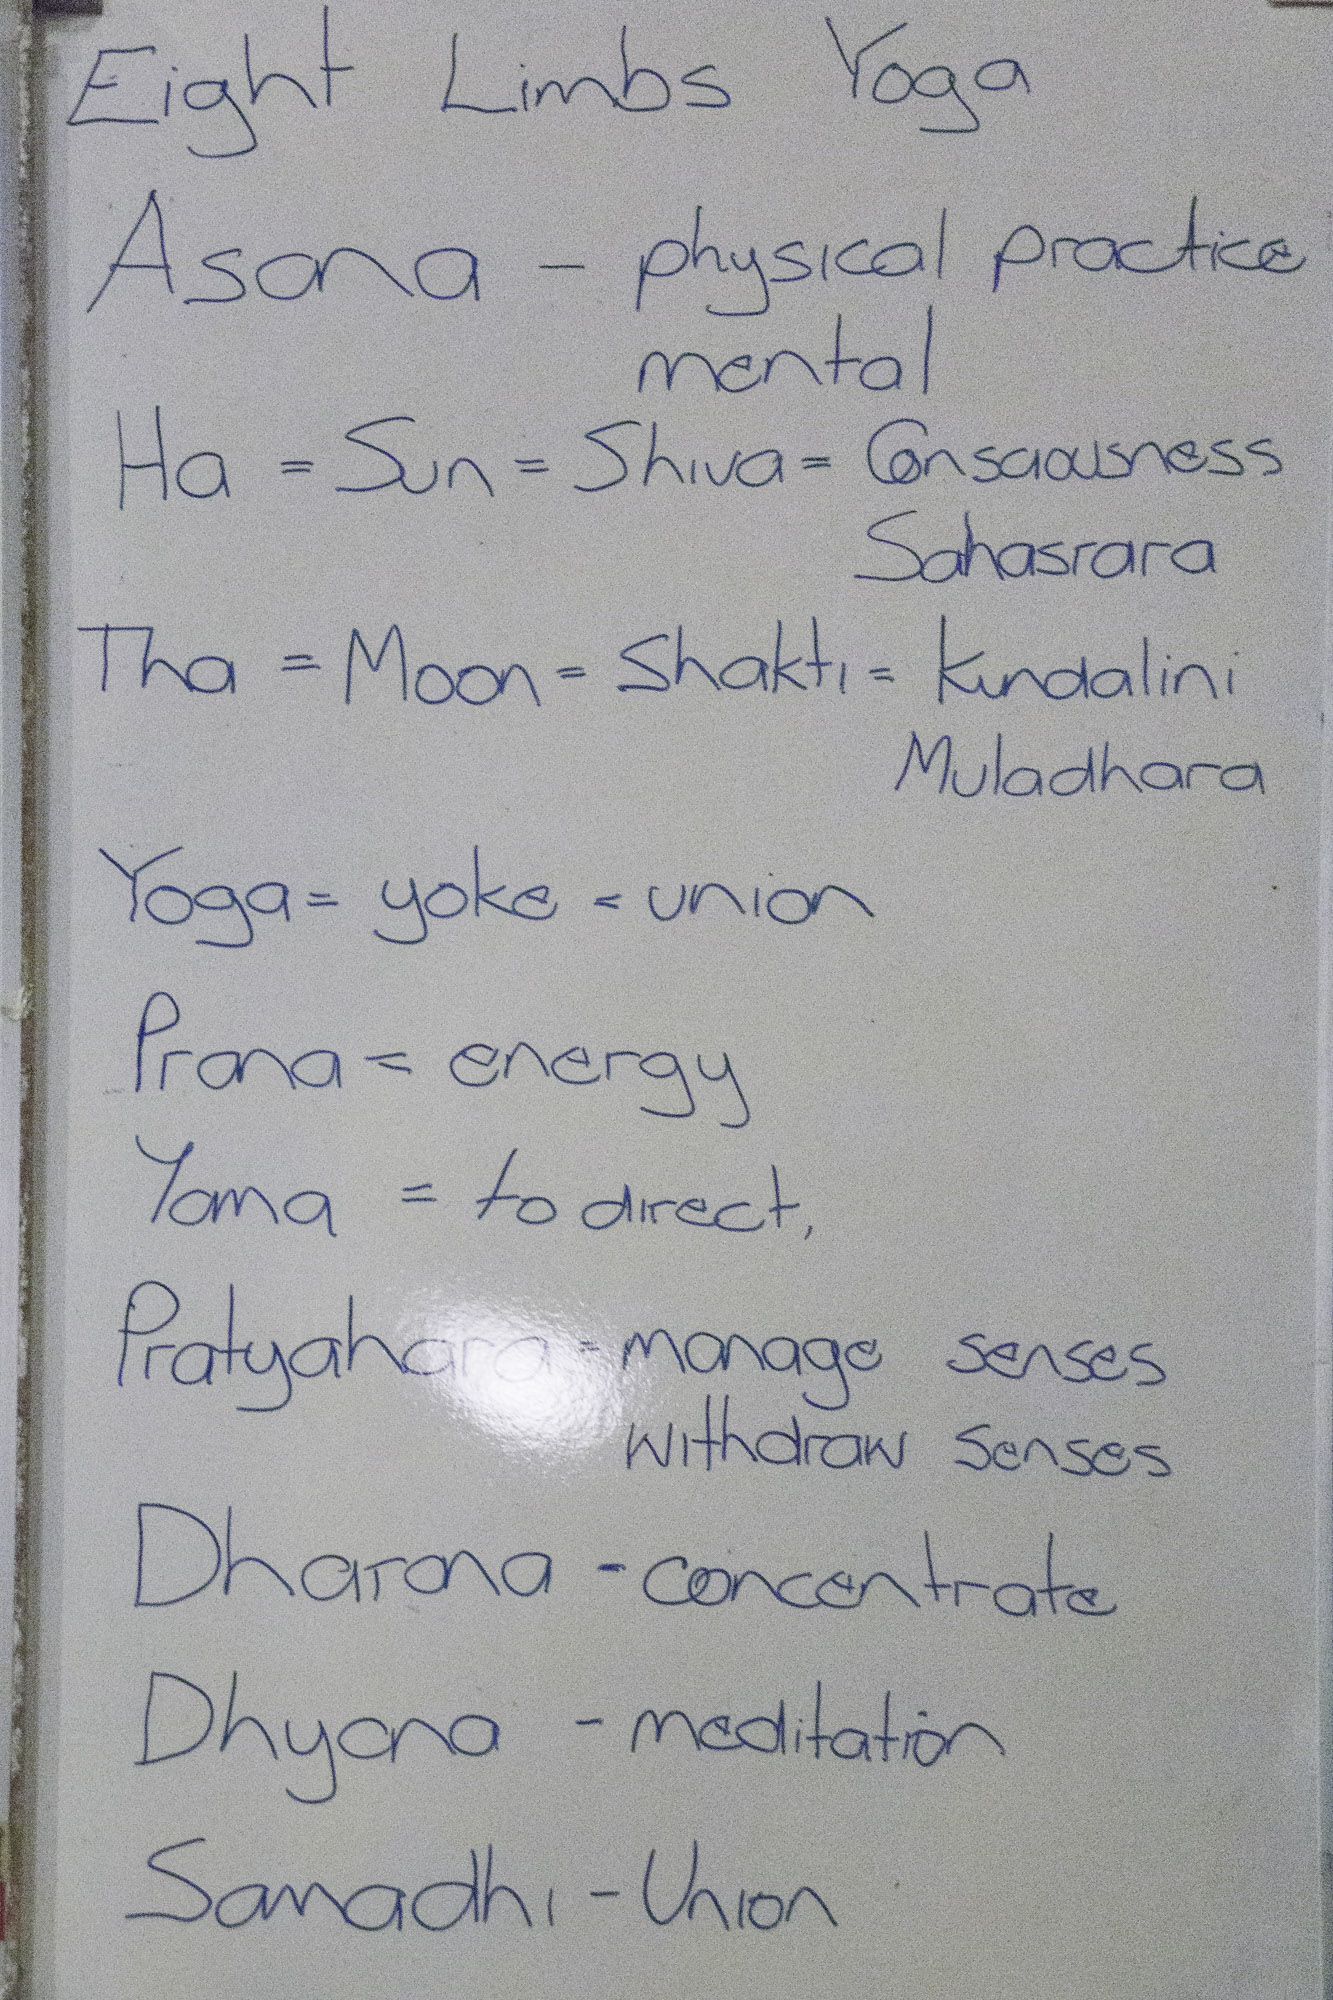 Eight Limbs Yoga
Asana - physical practice
mental
Ha = Sun = Shiva = Consciousness
Sahasrara
Tha = Moon = Shakti = Kundalini
Muladhara
Yoga = yoke = union
Prana = energy
Yama = to direct,
Pratyahara = manage senses
withdraw senses
Dharana - concentrate
Dhyana - meditation
Samadhi - Union